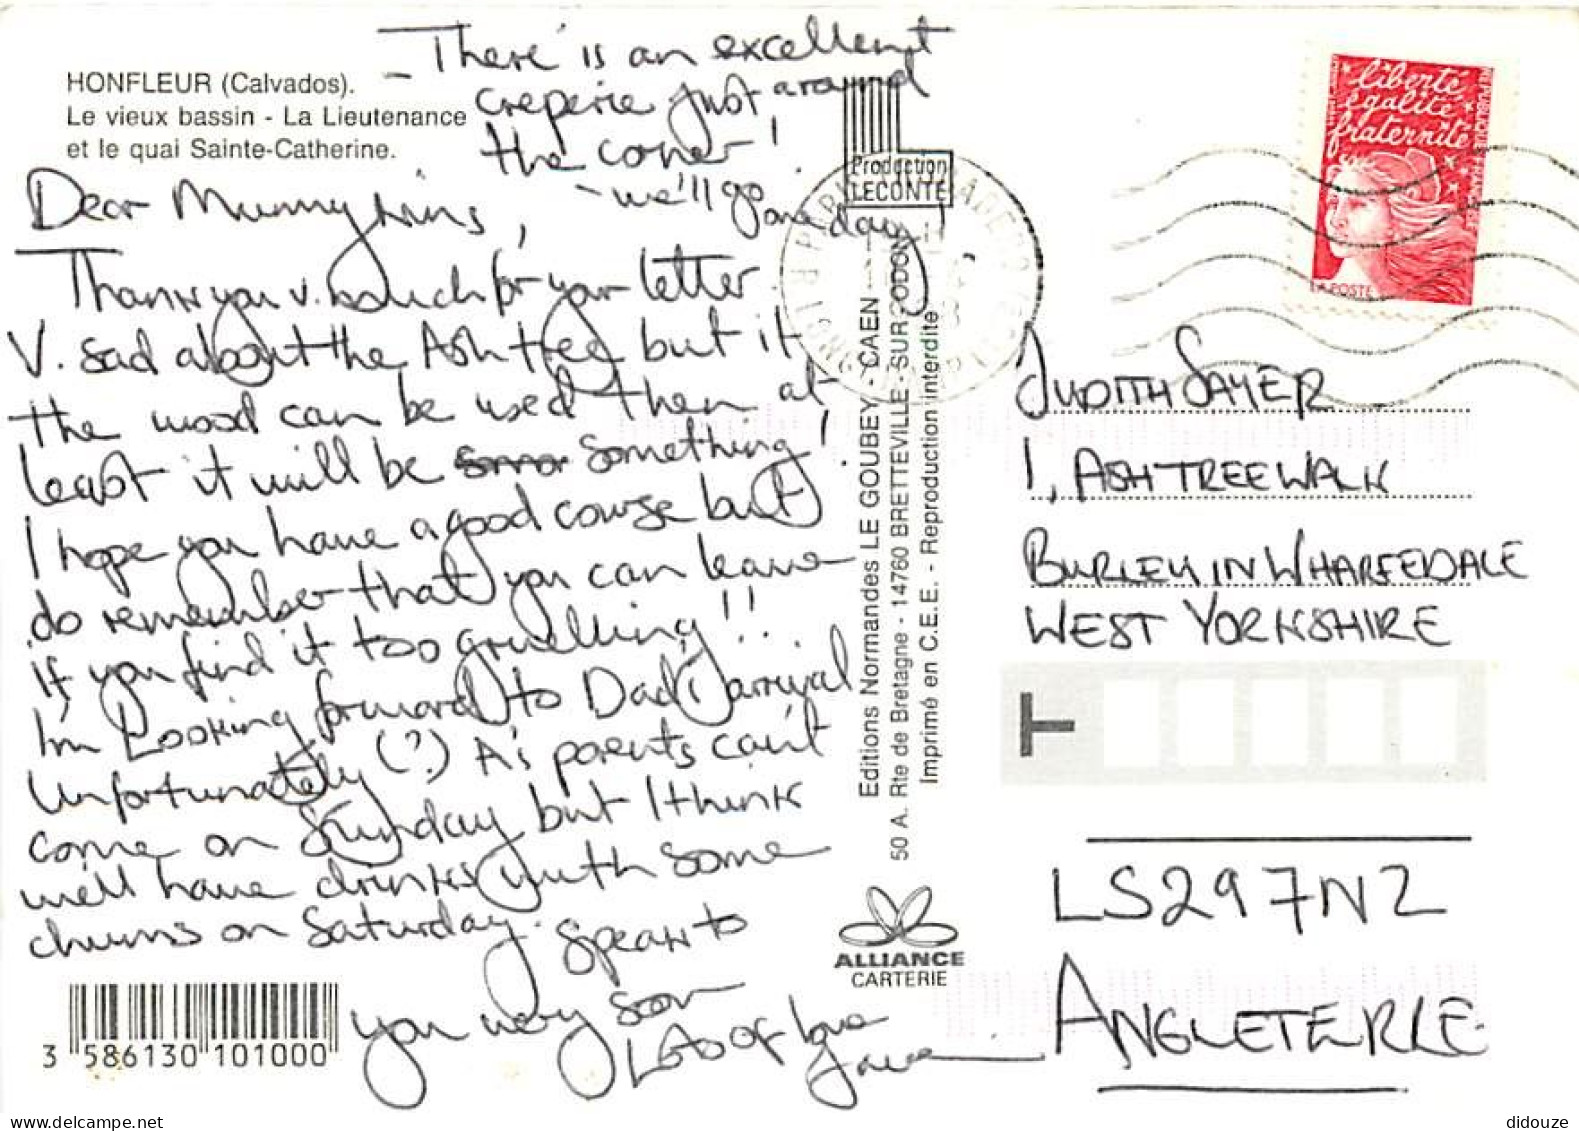 HONFLEUR (Calvados).
Le vieux bassin - La Lieutenance
et le quai Sainte-Catherine.
- There is an excellent
creperie just around
the corner!
- we'll go one day!
Dear Mummykins,
Thank you v. much for your letter
V. sad about the Ash tree but if
the wood can be used then at
least it will be something!
I hope you have a good course but
do remember that you can leave
if you find it too gruelling!!
I'm Looking forward to Dad's arrival
Unfortunately (?) A's parents can't
come on Sunday but I think
we'll have drinks with some
chums on Saturday. Speak to
you very soon
Lots of love
3 586130 101000
Production
LECONTE
Editions Normandes LE GOUBEY - CAEN
50 A. Rte de Bretagne - 14760 BRETTEVILLE - SUR - ODON
Imprimé en C.E.E. - Reproduction interdite
ALLIANCE
CARTERIE
liberté
égalité
fraternité
RÉPUBLIQUE FRANÇAISE
LA POSTE
JUDITH SAYER
1, ASH TREE WALK
BURLEY IN WHARFEDALE
WEST YORKSHIRE
T
LS29 7NZ
ANGLETERRE
delcampe.net
didouze